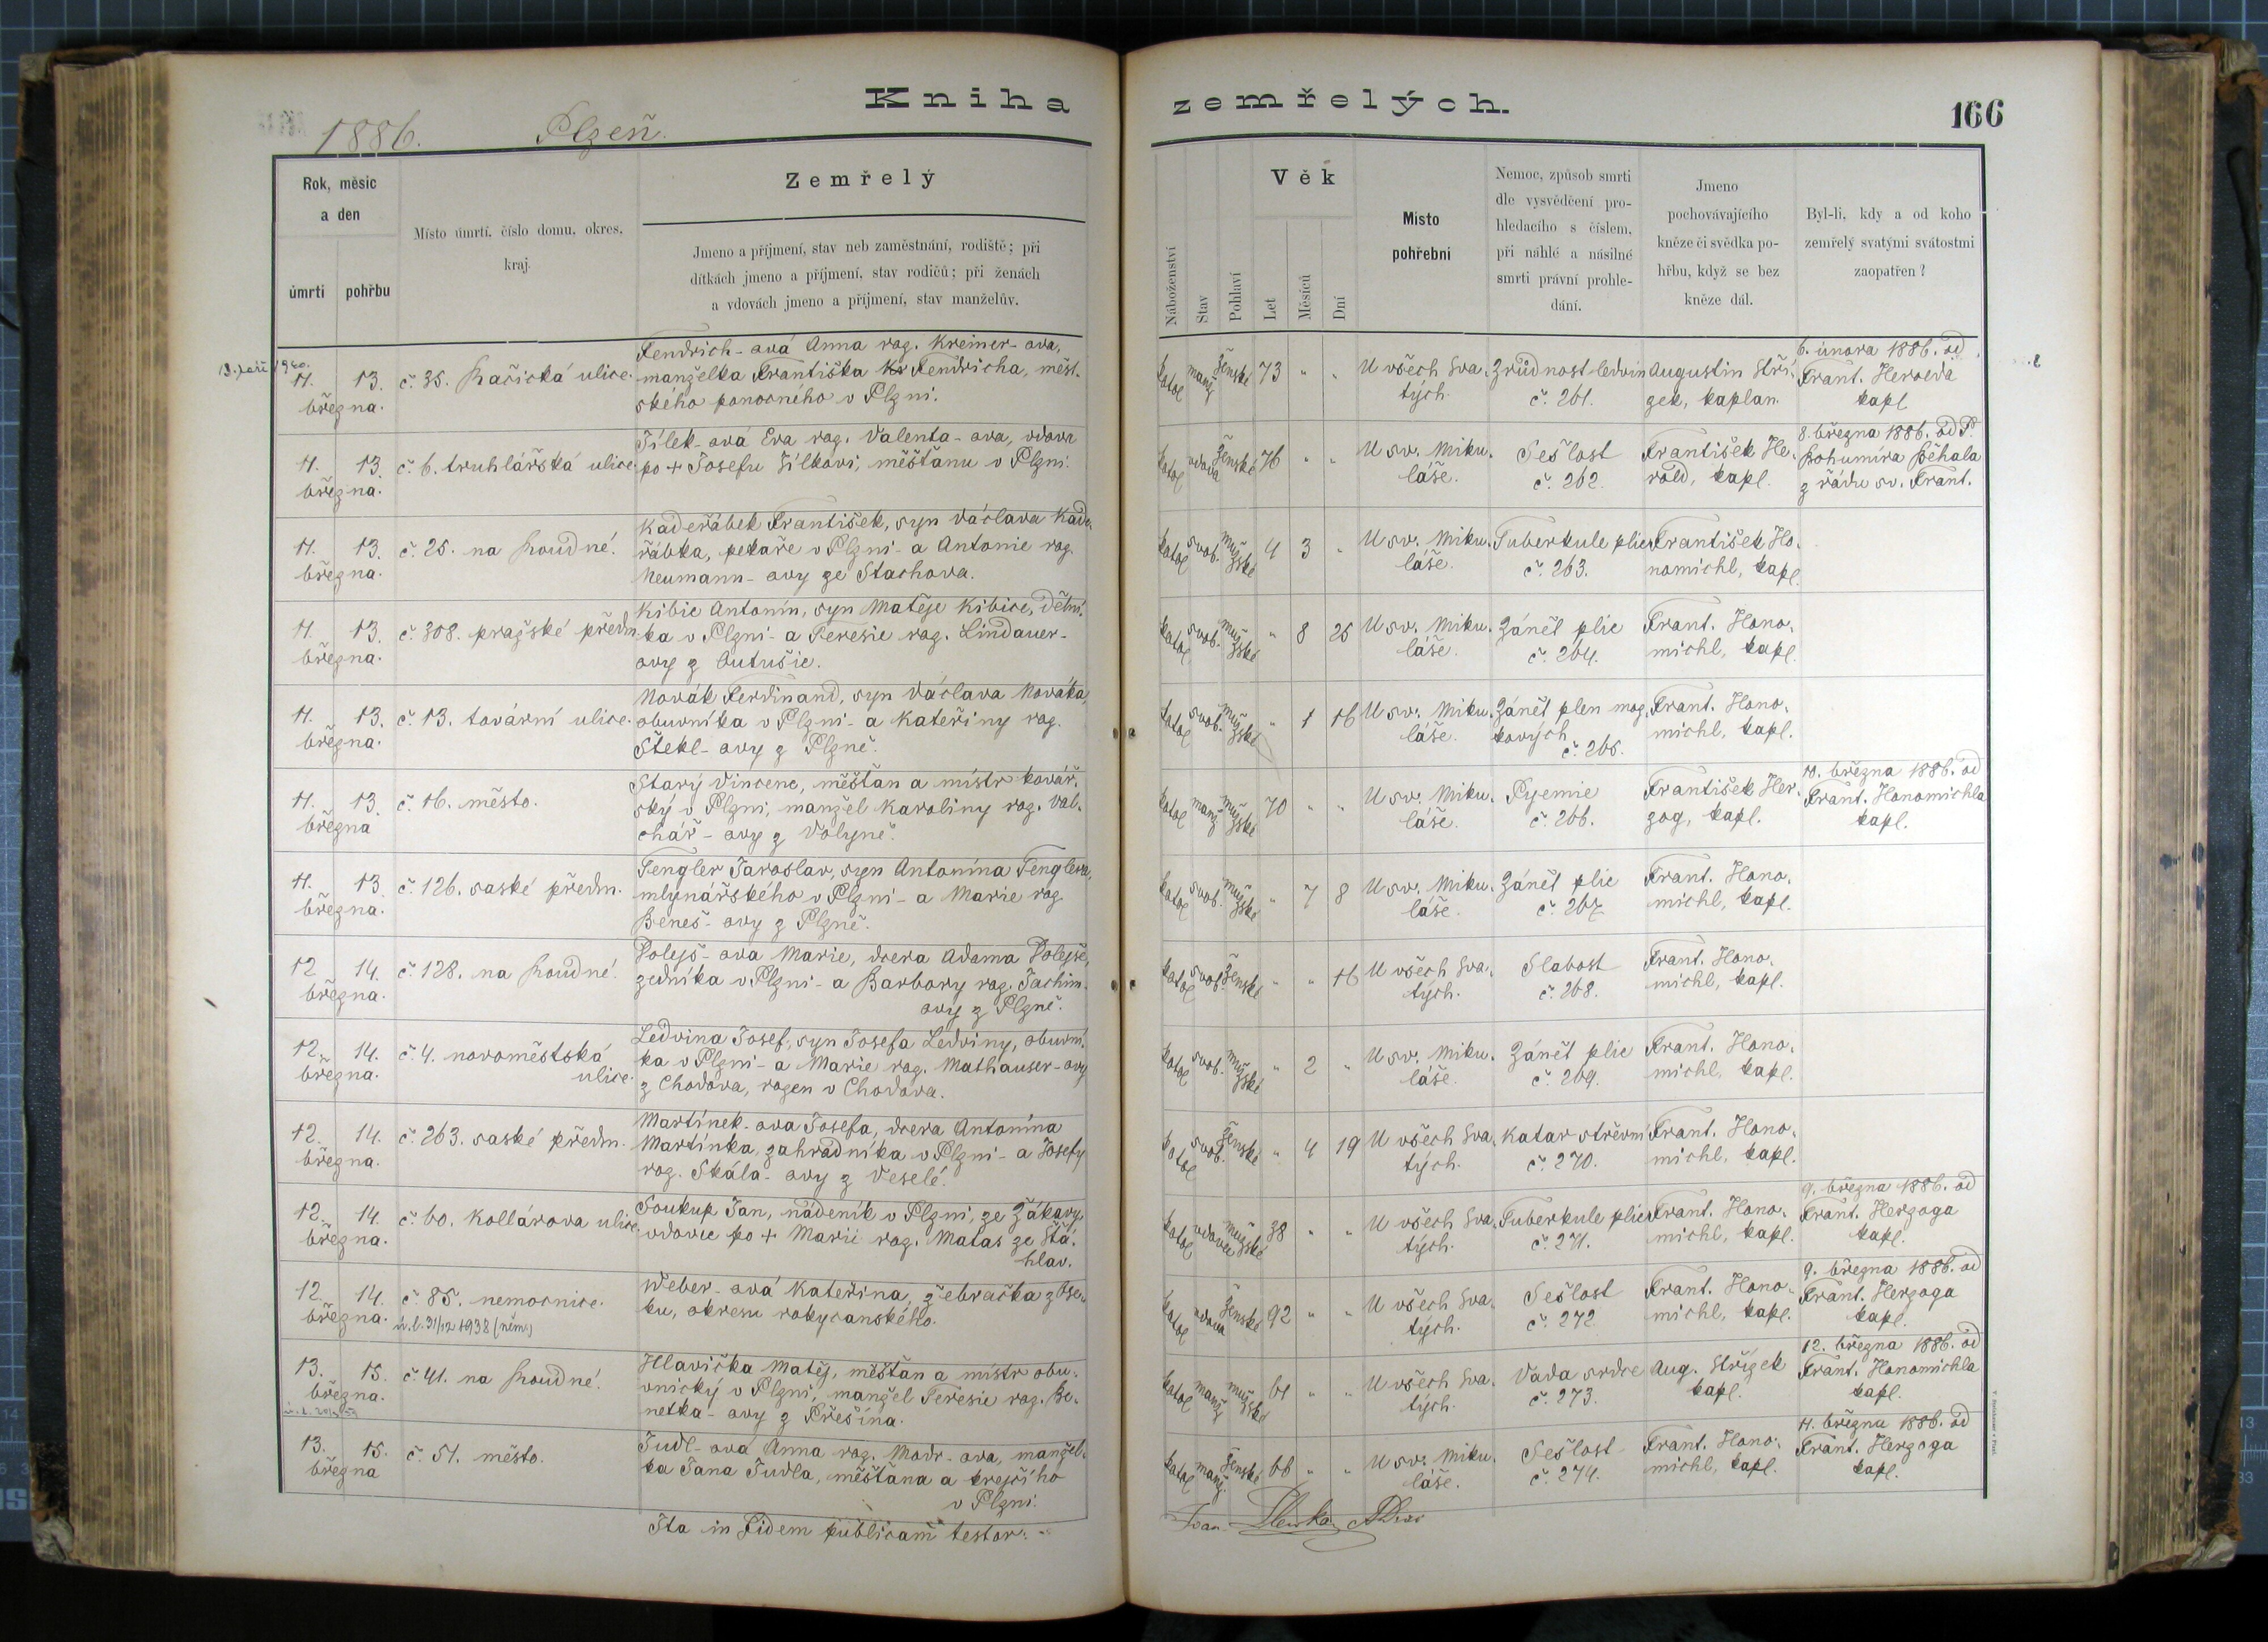 Kniha zemřelých.
166
1886. Plzeň.
Rok, měsíc a den
úmrtí
pohřbu
Místo úmrtí, číslo domu, okres, kraj.
Zemřelý
Jmeno a příjmení, stav neb zaměstnání, rodiště; při
dítkách jmeno a příjmení, stav rodičů; při ženách
a vdovách jmeno a příjmení, stav manželův.
Náboženství
Stav
Pohlaví
Věk
Let
Měsíců
Dní
Místo pohřební
Nemoc, způsob smrti
dle vysvědčení pro-
hledacího s číslem,
při náhlé a násilné
smrti právní prohle-
dání.
Jmeno
pochovávajícího
kněze či svědka po-
hřbu, když se bez
kněze dál.
Byl-li, kdy a od koho
zemřelý svatými svátostmi
zaopatřen?
11. března. 13. č. 35. ulice.
Fendrich-ová Anna roz. Kreiner-ova,
manželka Františka Fendricha, měst-
ského ponocného v Plzni.
katol manž ženské 73 " " U všech Sva-
tých. Zrůdnost ledvin
č. 261. Augustin Stří-
zek, kaplan. 6. února 1886. od
Frant. Herolda
kapl
11. března. 13. č. 6. truhlářská ulice.
Jílek-ová Eva roz. Valenta-ova, vdova
po + Josefu Jílkovi, měšťanu v Plzni.
katol vdova ženské 76 " " U sv. Miku-
láše. Sešlost
č. 262. František He-
rold, kapl. 8. března 1886. od P.
Bohumíra Běhala
z řádu sv. Frant.
11. března. 13. č. 25. na Roudné.
Kadeřábek František, syn Václava Kade-
řábka, pekaře v Plzni - a Antonie roz.
Neumann-ovy ze Stachova.
katol svob. mužské 4 3 " U sv. Miku-
láše. Tuberkule plic
č. 263. František Ho-
nomichl, kapl.
11. března. 13. č. 308. pražské předm.
Kibic Antonín, syn Matěje Kibice, dělní-
ka v Plzni - a Teresie roz. Lindauer-
ovy z Butušic.
katol svob. mužské " 8 25 U sv. Miku-
láše. Zánět plic
č. 264. Frant. Hono-
michl, kapl.
11. března. 13. č. 13. tovární ulice.
Novák Ferdinand, syn Václava Nováka,
obuvníka v Plzni - a Kateřiny roz.
Štekl-ovy z Plzně.
katol svob. mužské " 1 16 U sv. Miku-
láše. Zánět plen moz-
kových č. 265. Frant. Hono-
michl, kapl.
11. března 13. č. 16. město.
Starý Vincenc, měšťan a mistr kovář-
ský v Plzni, manžel Karoliny roz. Val-
chář-ovy z Volyně.
katol manž mužské 70 " " U sv. Miku-
láše. Pyemie
č. 266. František Her-
zog, kapl. 10. března 1886. od
Frant. Honomichla
kapl.
11. března. 13 č. 126. saské předm.
Fengler Jaroslav, syn Antonína Fenglera,
mlynářského v Plzni - a Marie roz.
Beneš-ovy z Plzně.
katol svob. mužské " 7 8 U sv. Miku-
láše. Zánět plic
č. 267. Frant. Hono-
michl, kapl.
12 března. 14. č. 128. na Roudné.
Polejš-ova Marie, dcera Adama Polejše,
zedníka v Plzni - a Barbory roz. Jachim-
ovy z Plzně.
katol svob. ženské " " 16 U všech Sva-
tých. Slabost
č. 268. Frant. Hono-
michl, kapl.
12. března. 14. č. 4. novoměstská
ulice.
Ledvina Josef, syn Josefa Ledviny, obuvní-
ka v Plzni - a Marie roz. Mathauser-ovy
z Chodova, rozen v Chodova.
katol svob. mužské " 2 " U sv. Miku-
láše. Zánět plic
č. 269. Frant. Hono-
michl, kapl.
12. března. 14. č. 263. saské předm.
Martínek-ova Josefa, dcera Antonína
Martínka, zahradníka v Plzni - a Josefy
roz. Skála-ovy z Veselé.
katol svob. ženské " 4 19 U všech Sva-
tých. Katar střevní
č. 270. Frant. Hono-
michl, kapl.
12. března. 14. č. 60. Kollárova ulice.
Soukup Jan, nádeník v Plzni, ze Žákavy,
vdovec po + Marii roz. Matas ze Šťá-
hlav.
katol vdovec mužské 38 " " U všech Sva-
tých. Tuberkule plic
č. 271. Frant. Hono-
michl, kapl. 9. března 1886. od
Frant. Herzoga
kapl.
12. března. 14. č. 85. nemocnice.
ú. l. 31/12 1938 (něm.)
Weber-ová Kateřina, žebračka z Ose-
ku, okresu rokycanského.
katol vdova ženské 92 " " U všech Sva-
tých. Sešlost
č. 272 Frant. Hono-
michl, kapl. 9. března 1886. od
Frant. Herzoga
kapl.
13. března. 15. č. 41. na Roudné.
Hlavička Matěj, měšťan a mistr obu-
vnický v Plzni, manžel Teresie roz. Be-
netka-ovy z Přešína.
katol manž mužské 61 " " U všech Sva-
tých. Vada srdce
č. 273. Aug. Střízek
kapl. 12. března 1886. od
Frant. Honomichla
kapl.
13. března 15. č. 51. město.
Judl-ová Anna roz. Modr-ova, manžel-
ka Jana Judla, měšťana a krejčího
v Plzni.
katol manž. ženské 66 " " U sv. Miku-
láše. Sešlost
č. 274. Frant. Hono-
michl, kapl. 11. března 1886. od
Frant. Herzoga
kapl.
Ita in Fidem publicam testor:
Joan